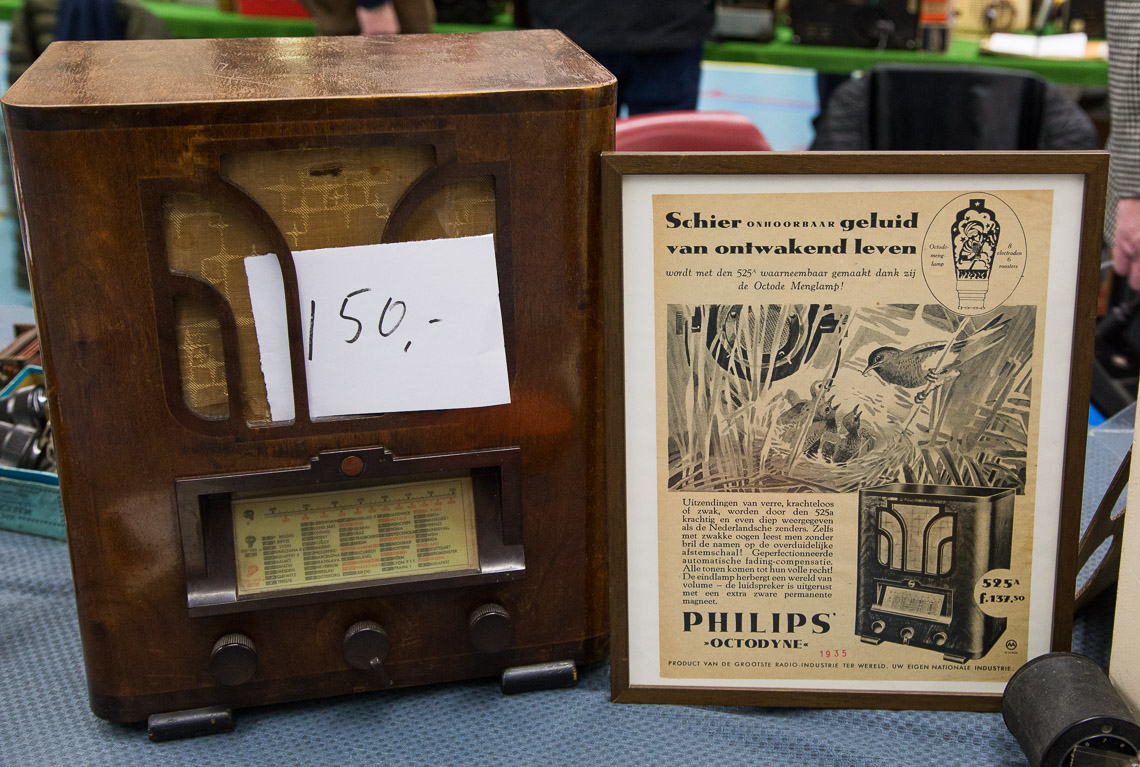 150,-
Schier ONHOORBAAR geluid
van ontwakend leven
wordt met den 525ᴬ waarneembaar gemaakt dank zij
de Octode Menglamp!
Octode-
meng-
lamp
8
electroden
6
roosters
Uitzendingen van verre, krachteloos
of zwak, worden door den 525a
krachtig en even diep weergegeven
als de Nederlandsche zenders. Zelfs
met zwakke oogen leest men zonder
bril de namen op de overduidelijke
afstemschaal! Geperfectionneerde
automatische fading-compensatie.
Alle tonen komen tot hun volle recht!
De eindlamp herbergt een wereld van
volume – de luidspreker is uitgerust
met een extra zware permanente
magneet.
525ᴬ
f.137,50
PHILIPS'
»OCTODYNE«
1935
PRODUCT VAN DE GROOTSTE RADIO-INDUSTRIE TER WERELD. UW EIGEN NATIONALE INDUSTRIE.